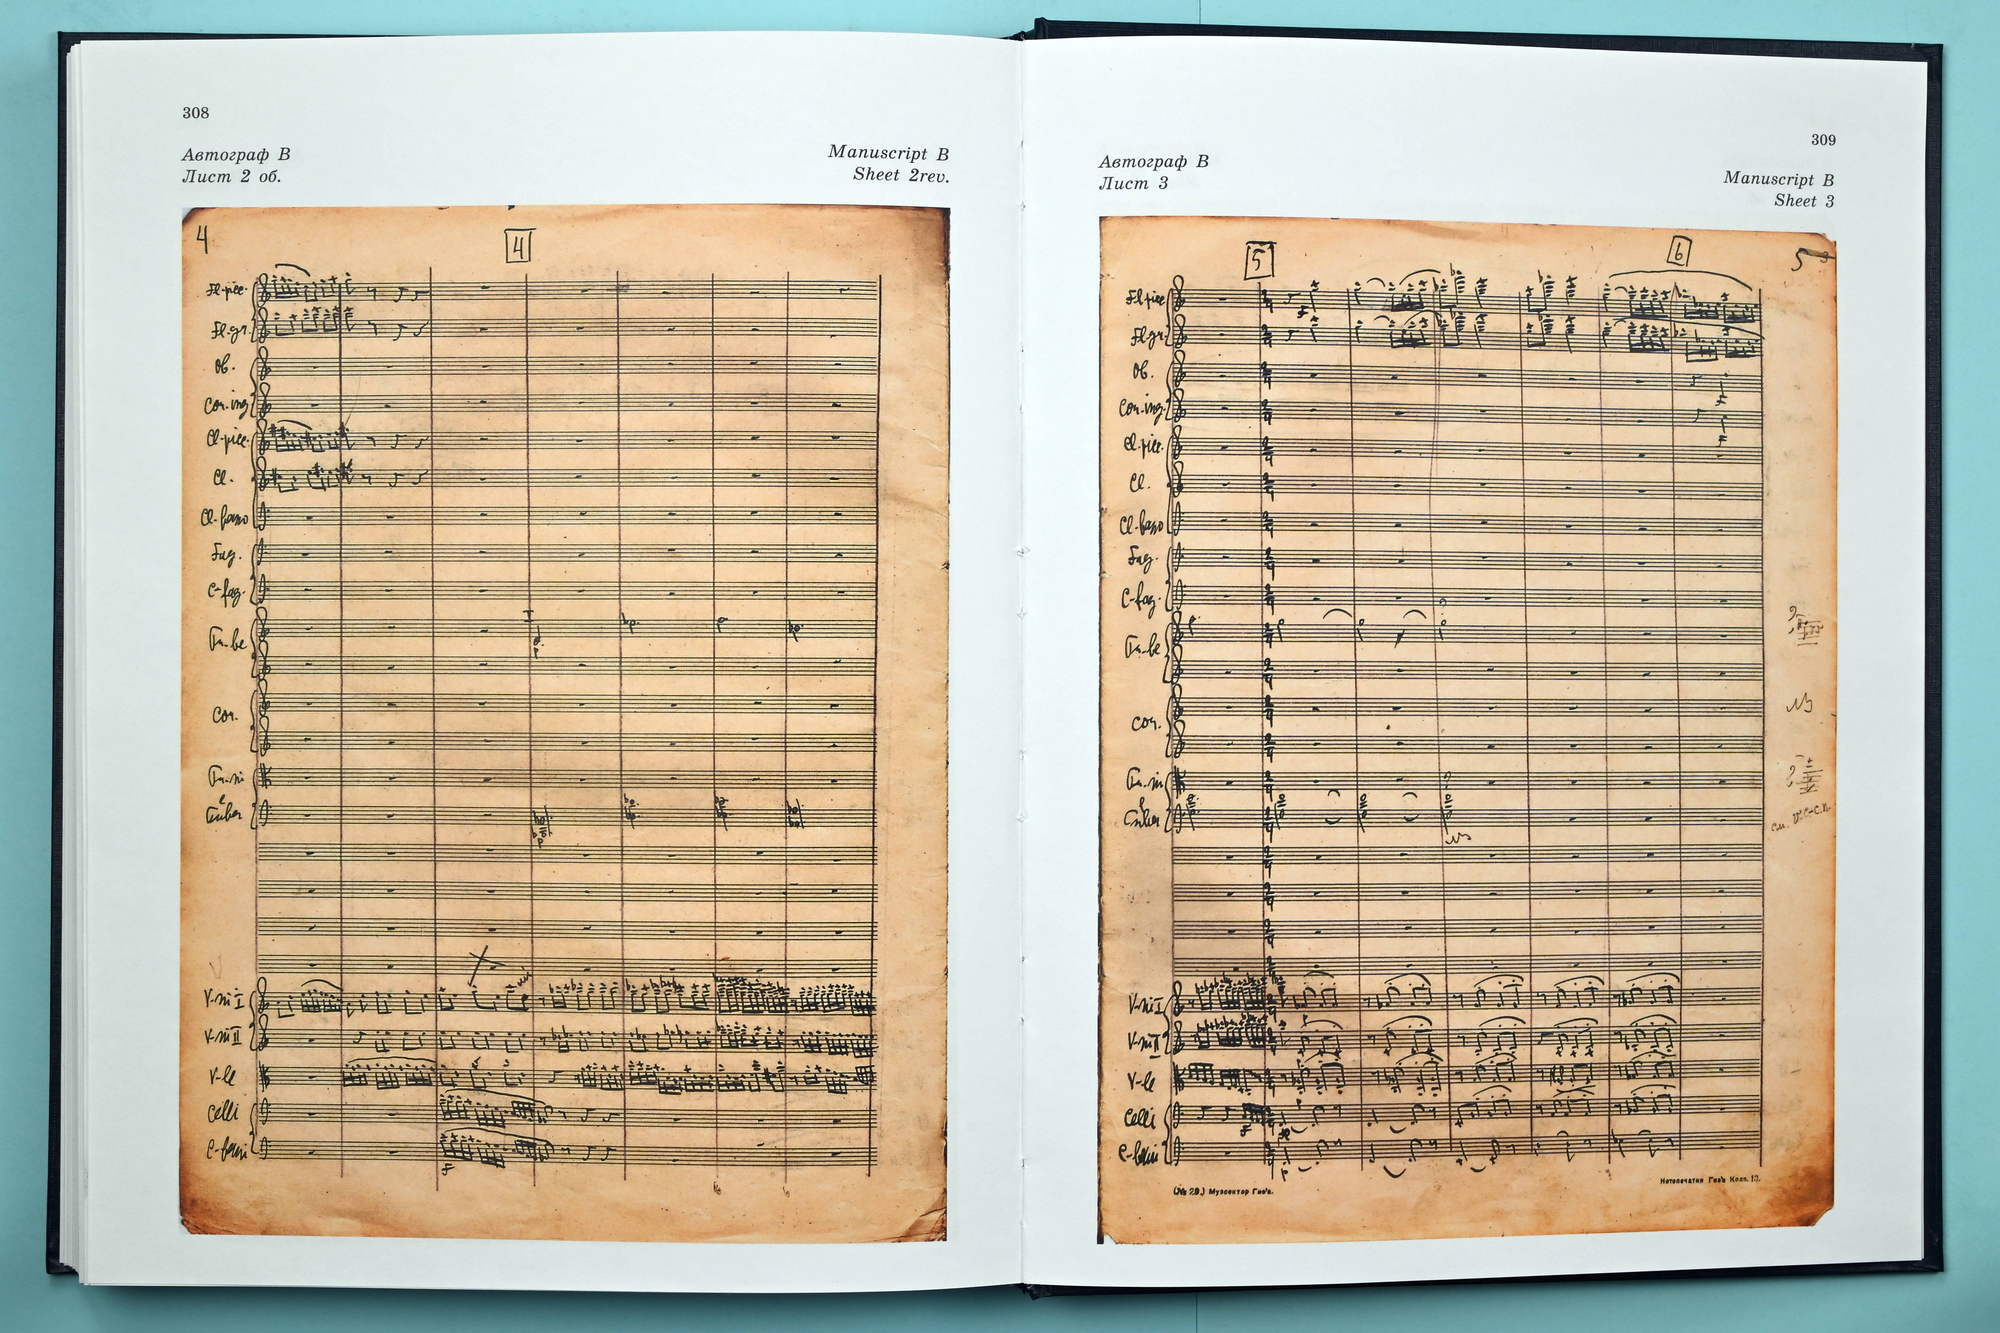 308
Автограф В
Лист 2 об.
Manuscript B
Sheet 2rev.
4
4
Fl-picc.
Fl.gr.
Ob.
Cor.ing
Cl-picc.
Cl.
Cl-basso
Fag.
C-fag.
Tr-be
I
Cor.
Tr-ni
e
Tuba
V-ni I
V-ni II
V-le
Celli
C-bassi
f
309
Автограф В
Лист 3
Manuscript B
Sheet 3
5
6
5
Fl-picc
Fl.gr.
Ob.
Cor.ing.
Cl-picc.
Cl.
Cl-basso
Fag.
C-fag.
Tr-be
Cor.
Tr-ni
e
Tuba
V-ni I
V-ni II
V-le
Celli
C-bassi
(№ 29.) Музсектор Гиз'а.
Нотопечатня Гиз'а Колп. 13.